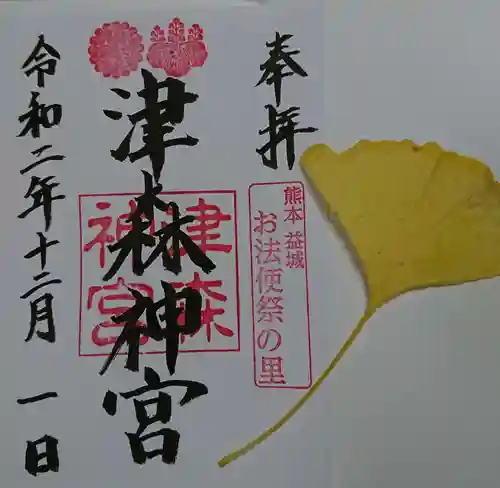 奉拝
熊本 益城
お法使祭の里
津森神宮
津森神宮
令和二年十二月 一日